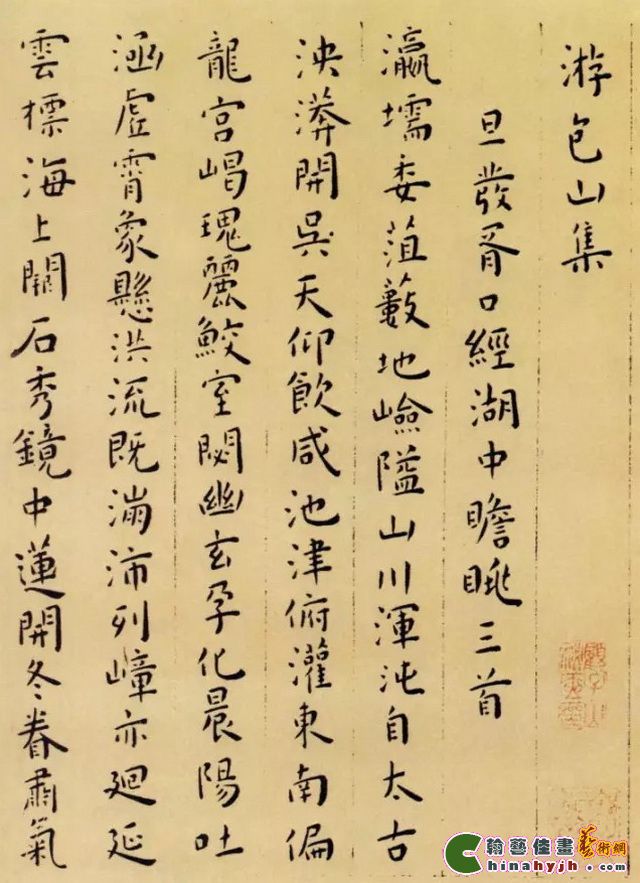 游包山集
旦發胥口經湖中瞻眺三首
瀛壖委菹藪地嶮隘山川渾沌自太古
泱漭開吳天仰飲咸池津俯灌東南偏
龍宮崵瑰麗鮫室閟幽玄孕化晨陽吐
涵虛霄象懸洪流既滿沛列嶂亦廻延
雲標海上闕石秀鏡中蓮開冬眷肅氣
翰藝佳畫藝術網
Chinahyjh.com